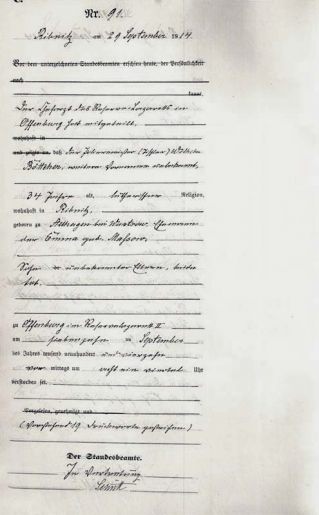 Nr. 91.
Ribnitz am 29 September 1914.
Vor dem unterzeichneten Standesbeamten erschien heute, der Persönlichkeit
nach
kannt,
Der Chefarzt des Reserve-Lazaretts in
Offenburg hat mitgeteilt,
wohnhaft in
und zeigte an, daß der (Tischler) Wilhelm
weitere Vornamen unbekannt,
34 Jahre alt, lutherischer Religion,
wohnhaft in Ribnitz,
geboren zu bei Wustrow, Ehemann
der Emma geb.
Sohn unbekannter Eltern, beide
tot.
zu Offenburg im Reservelazarett II
am siebenzehn ten September
des Jahres tausend neunhundert und vierzehn
vor mittags um ein viertel Uhr
verstorben sei.
Vorgelesen, genehmigt und
(Vorstehend 19 Druckworte gestrichen)
Der Standesbeamte.
In Vertretung